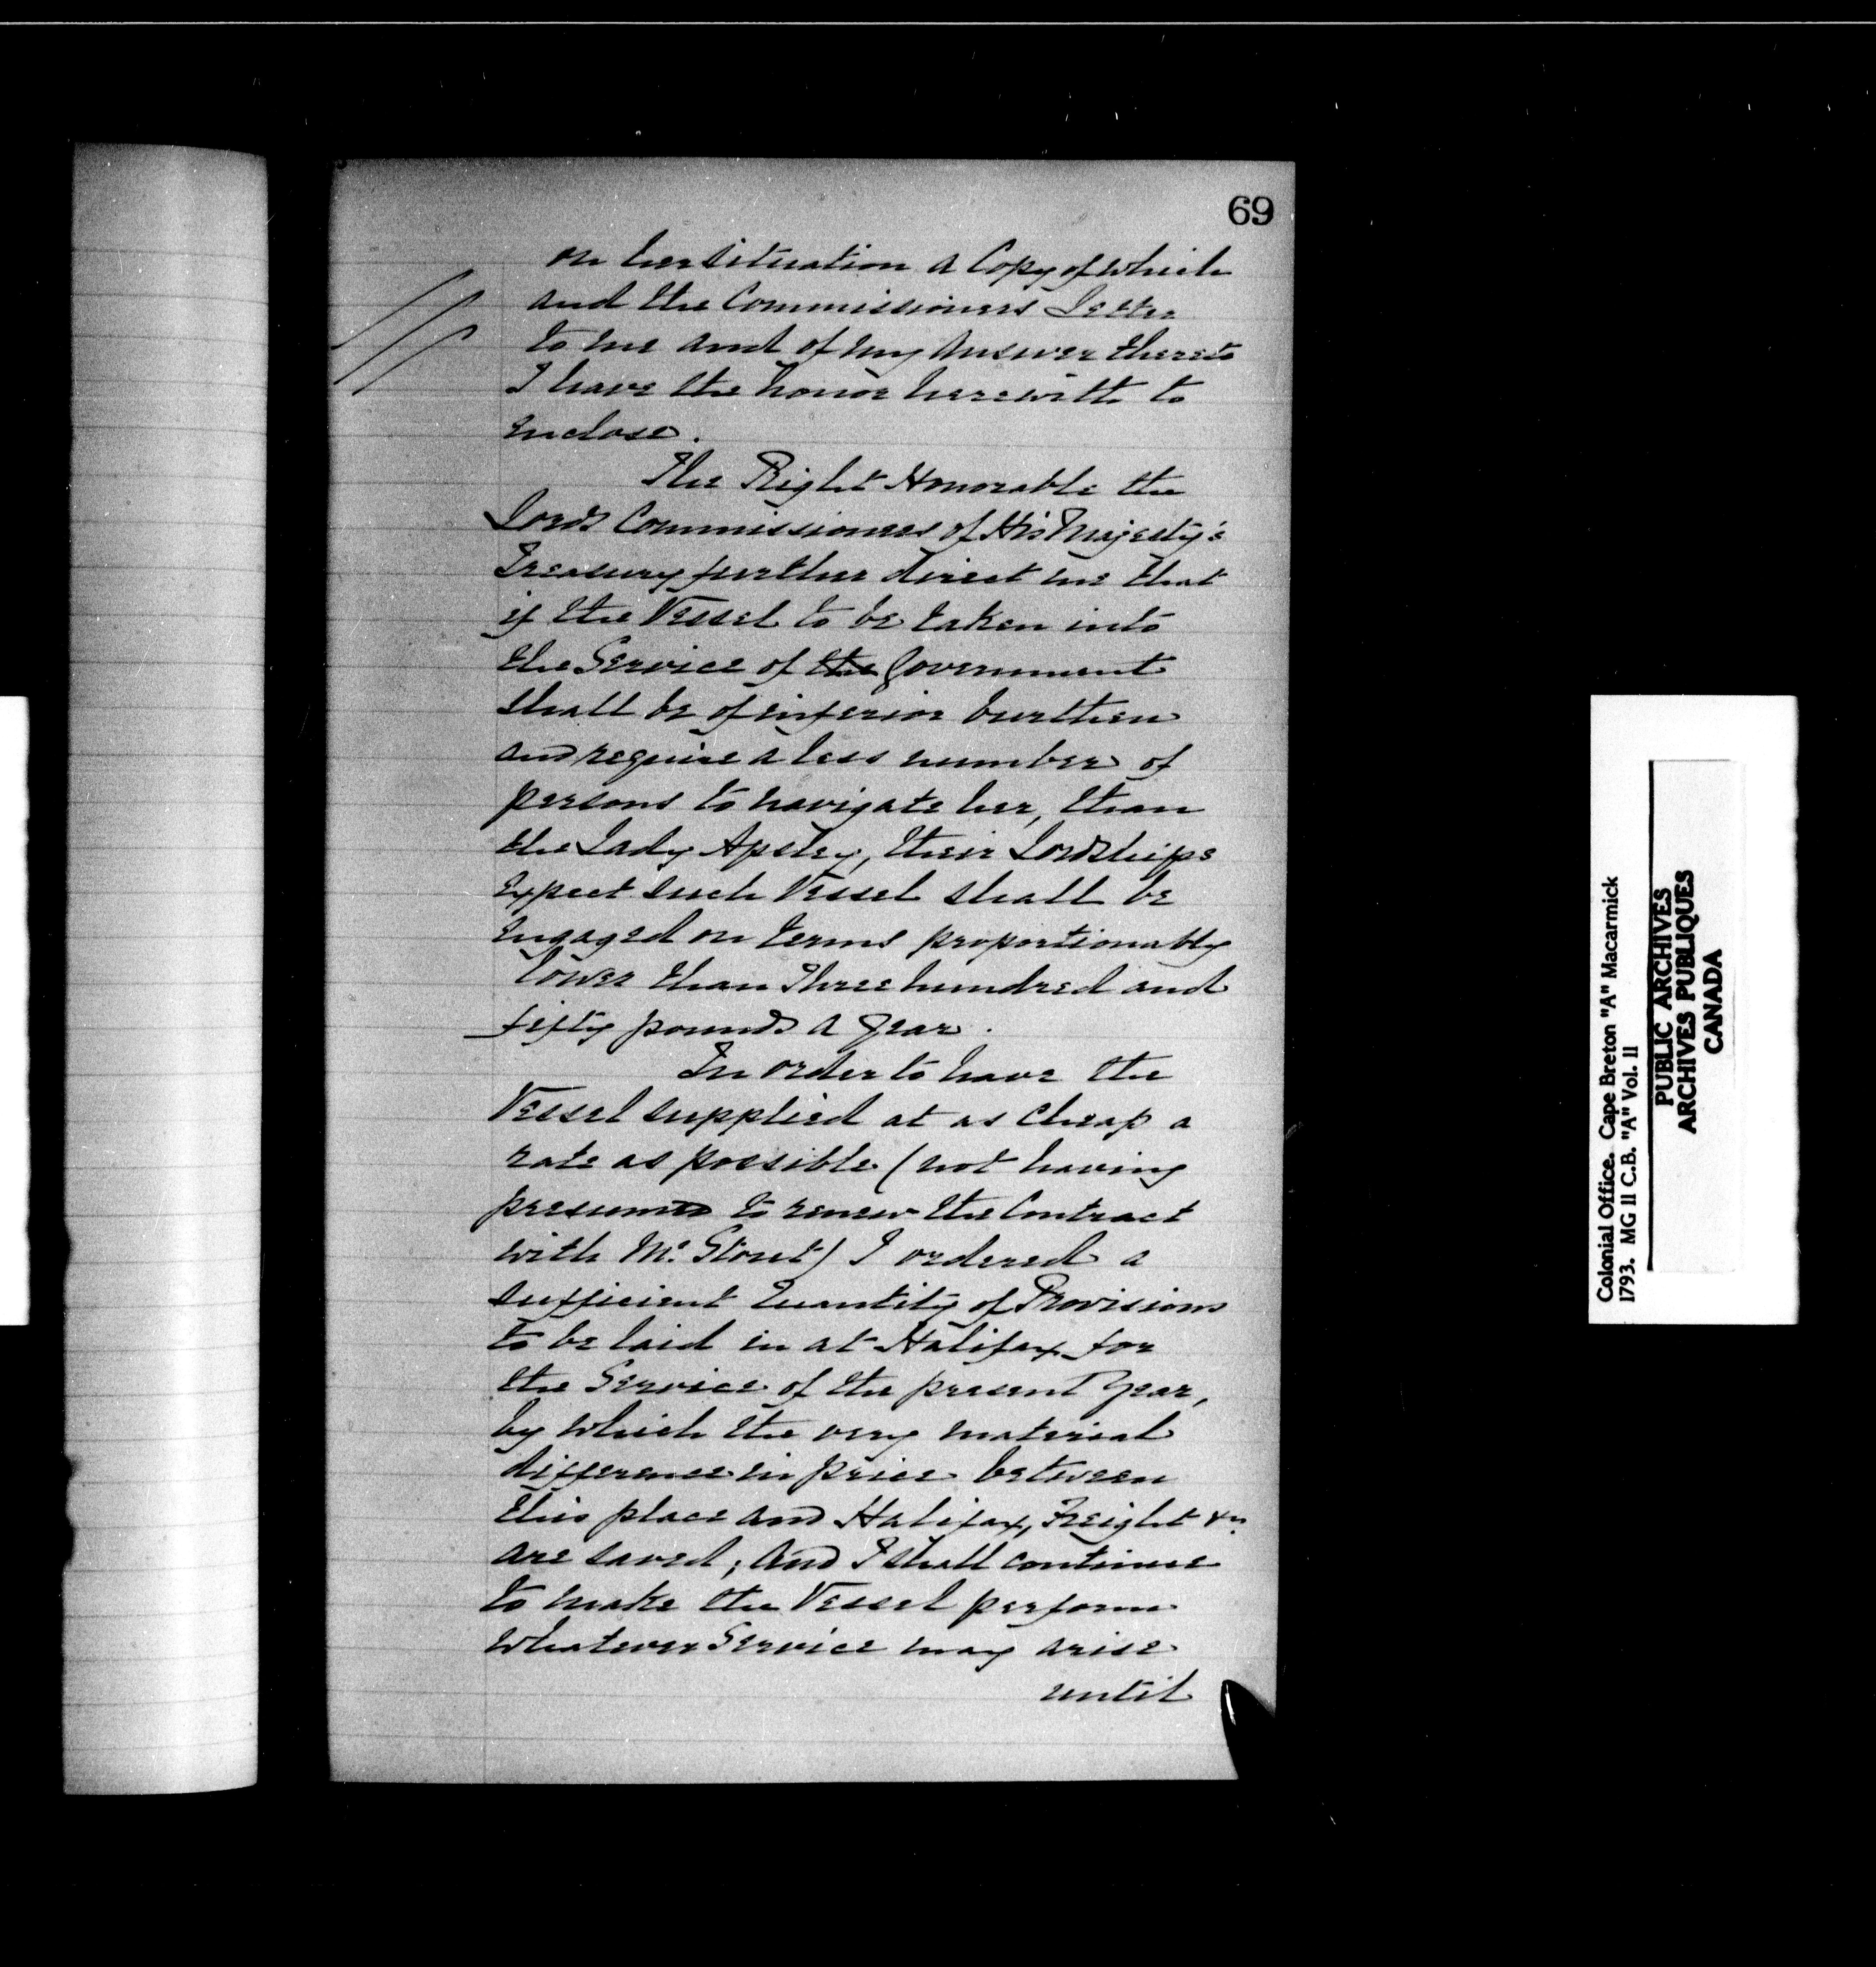 69
on her situation a Copy of which
and the Commissioners Letter
to me and of my answer thereto
I have the honor herewith to
enclose.
The Right Honorable the
Lords Commissioners of His Majesty's
Treasury further direct me that
if the Vessel to be taken into
the Service of the Government
shall be of inferior burthen
and require a less number of
persons to navigate her, than
the Lady Apsley, their Lordships
expect such Vessel shall be
engaged on terms proportionably
lower than Three hundred and
fifty pounds a year.
In order to have the
Vessel supplied at as cheap a
rate as possible (not having
presumed to renew the Contract
with Mr. Stout) I ordered a
sufficient Quantity of Provisions
to be laid in at Halifax for
the Service of the present Year,
by which the very material
difference in price between
this place and Halifax, Freight &c.
are saved; and I shall continue
to make the Vessel perform
whatever Service may arise
until
Colonial Office. Cape Breton "A" Macarmick
1793. MG 11 C.B. "A" Vol. 11
PUBLIC ARCHIVES
ARCHIVES PUBLIQUES
CANADA